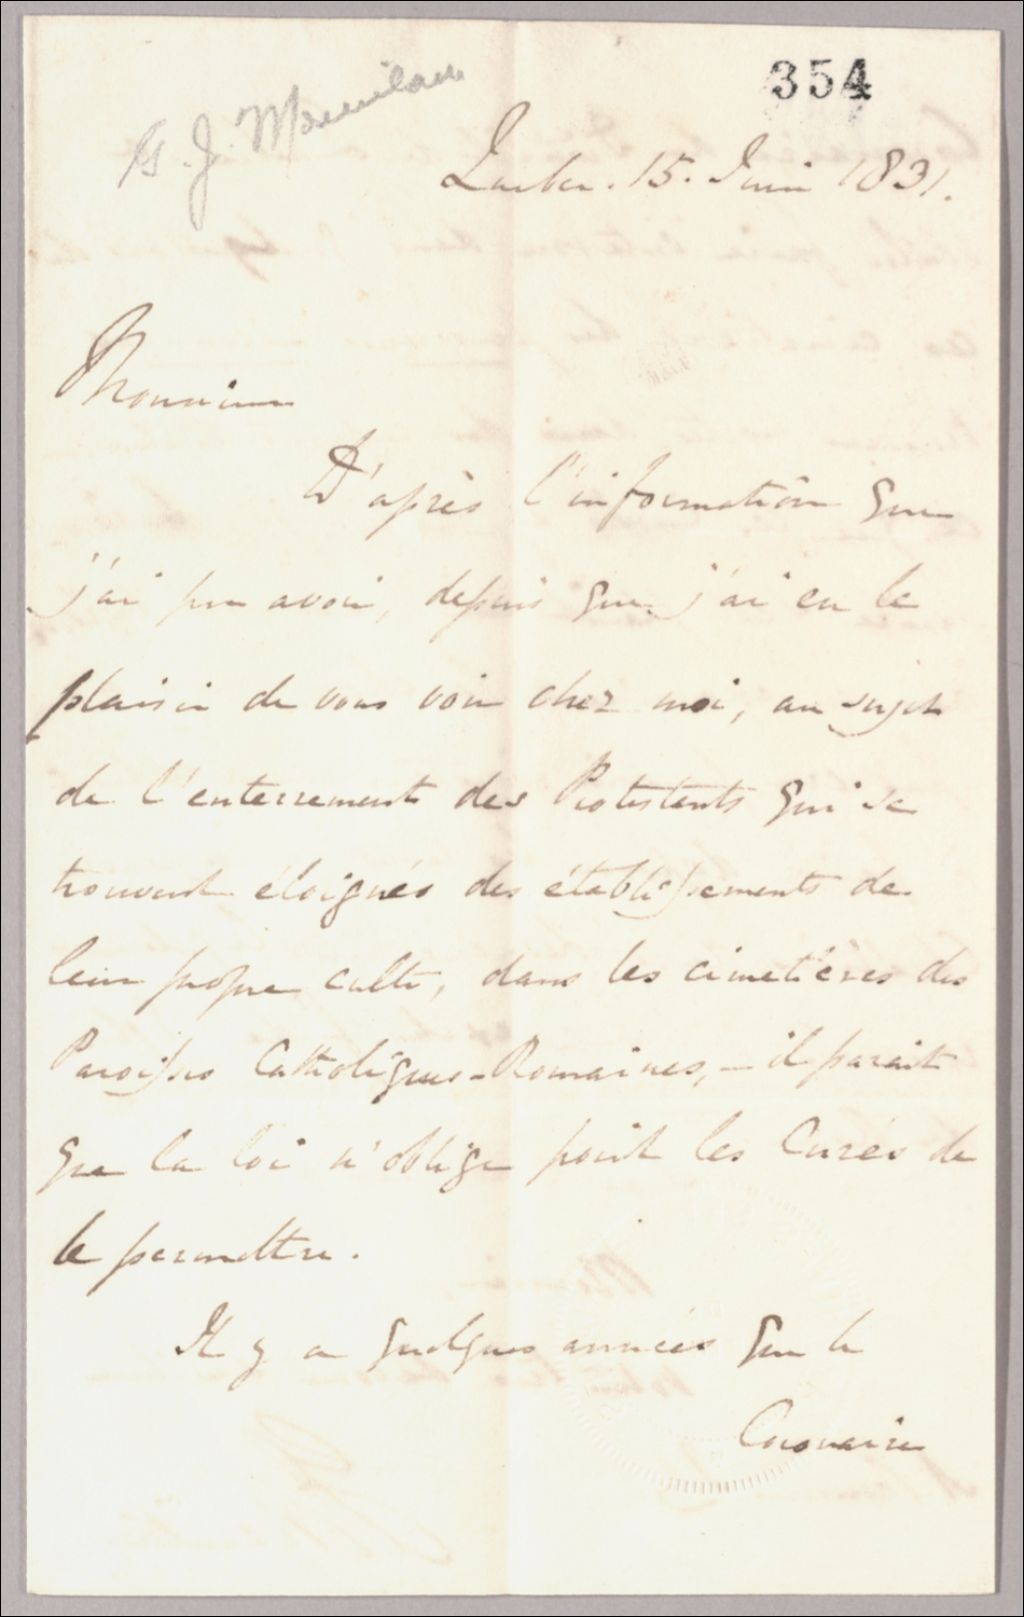 354
G. J.
Québec. 15. Juin 1831.
Monsieur
D'après l'information que
j'ai pu avoir, depuis que j'ai eu le
plaisir de vous voir chez moi, au sujet
de l'enterrement des Protestants qui se
trouvent éloignés des établissements de
leur propre culte, dans les cimetières des
Paroisses Catholiques-Romaines, – il parait
que la loi n'oblige point les Curés de
le permettre.
Il y a quelques années que le
Coronaire